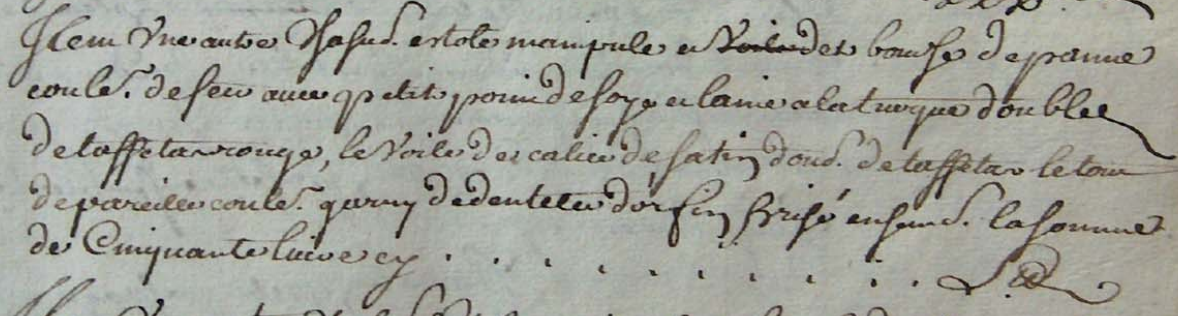 Item Une autre Chasub. estole manipule et voile des bourse de panne
coule.r de feu avec petit poin de soye et laine a la turque doublee
de taffetas rouge, le Voile des calice de satin doub. de taffetas le tour
de pareille coule.r garny de dentelle d'or fin prisé ensemb. la somme
de Cinquante livre cy . . . . . . . . . . L lt